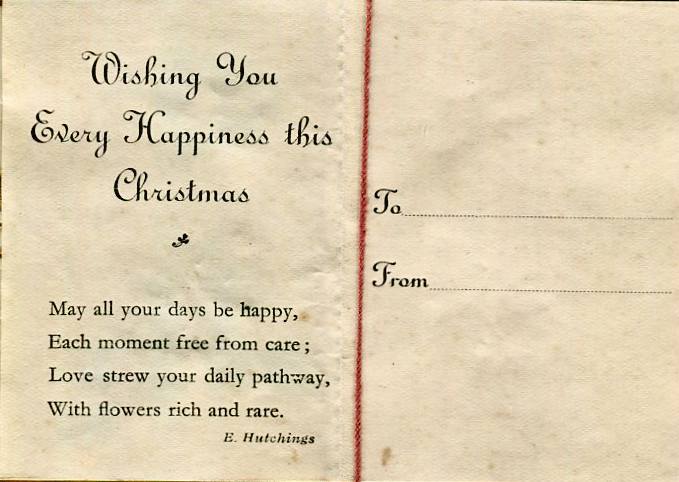 Wishing You
Every Happiness this
Christmas
May all your days be happy,
Each moment free from care;
Love strew your daily pathway,
With flowers rich and rare.
E. Hutchings
To
From